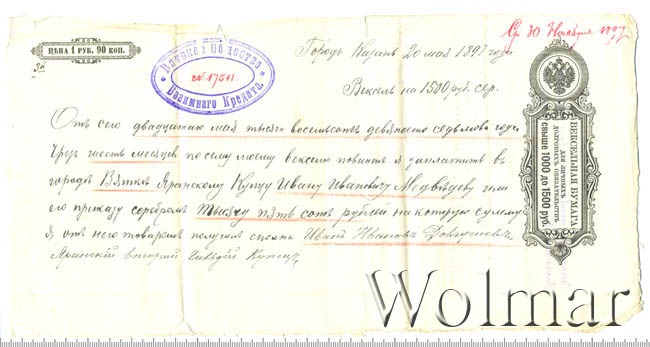 ЦѢНА 1 РУБ. 90 КОП.
Вятское Общество
№ 17511
Взаимнаго Кредита.
Ср. 20 Ноября 1897
Городъ Казань 20 мая 1897 года
Вексель на 1500 руб. сер.
Отъ сего двадцатаго мая тысяча восемьсотъ девяносто седьмого года
Чрез шесть месяцев по сему моему векселю повиненъ я заплатить въ
городѣ Вяткѣ Яранскому Купцу Ивану Ивановичу Медвѣдеву или
его приказу серебромъ тысячу пять сотъ рублей на которую сумму
я отъ него товаромъ получилъ сполна Иванъ Ивановъ
Яранскій второй гильдіи Купецъ
ВЕКСЕЛЬНАЯ БУМАГА
ДЛЯ ЛИЧНЫХЪ
ДОЛГОВЫХЪ ОБЯЗАТЕЛЬСТВЪ
СВЫШЕ 1000 ДО 1500 РУБ.
Wolmar